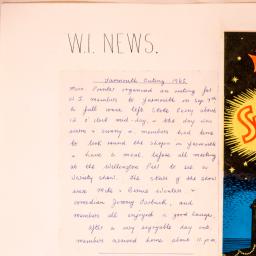 W.I. NEWS.
Yarmouth Outing 1965
Mrs. organised an outing for
W I members to Yarmouth on Sep 7th
A full coach left Stoke Ferry about
12 o'clock mid-day, & the day was
warm & sunny & members had time
to look round the shops in Yarmouth
& have a meal before all meeting
at the Wellington Pier to see a
Variety show. The stars of the show
were Mike & Bernie Winters &
comedian Jimmy and
members all enjoyed a good laugh,
after a very enjoyable day out,
members arrived home about 11 p.m.